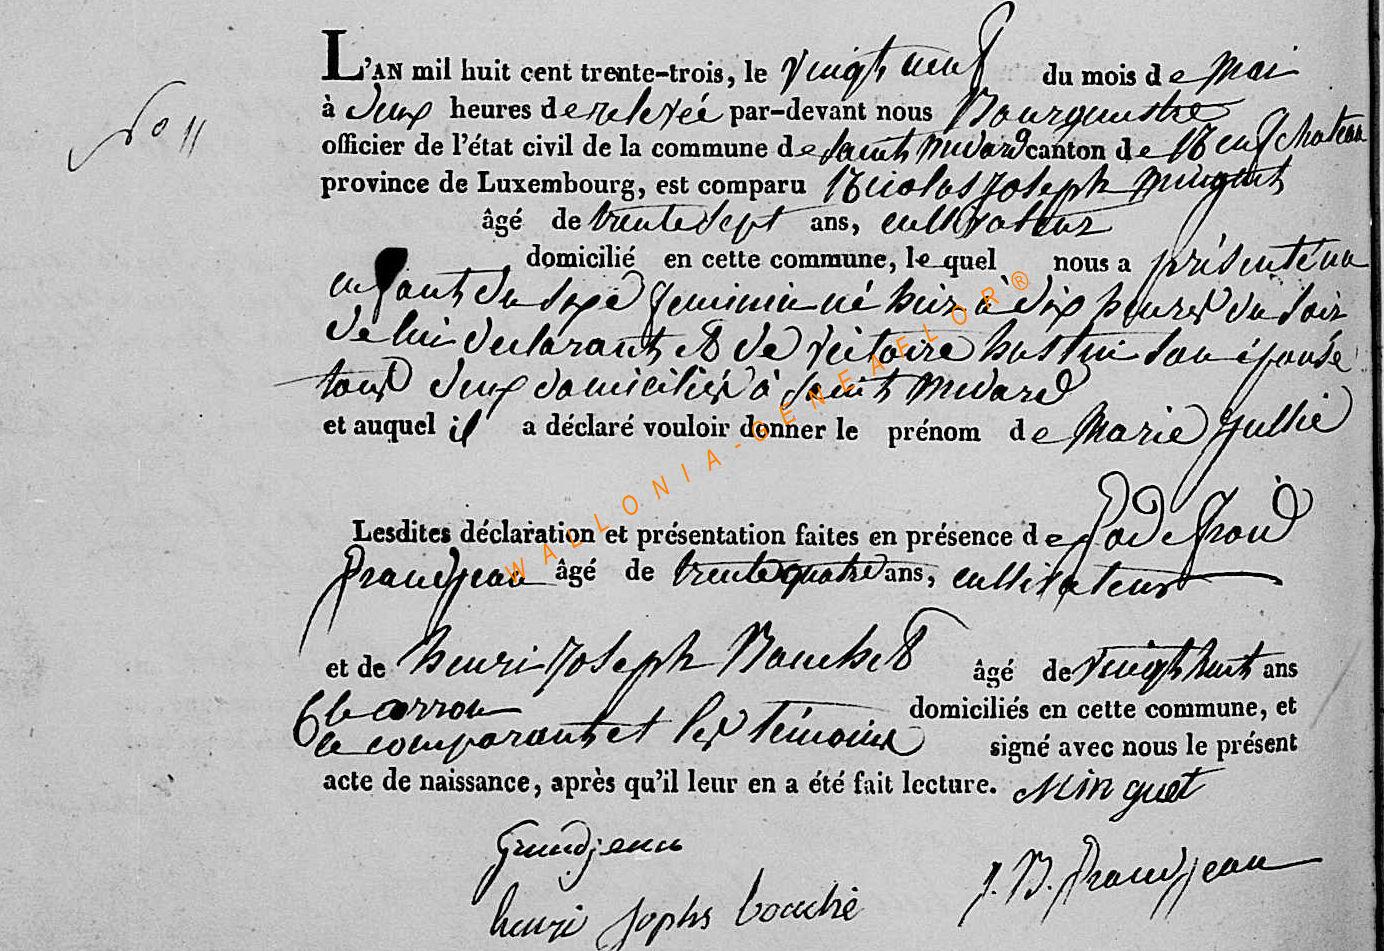 N° 11
L'AN mil huit cent trente-trois, le vingt neuf du mois de Mai
à deux heures de relevée par-devant nous Bourguestre
officier de l'état civil de la commune de Saint Medard canton de Neufchateau
province de Luxembourg, est comparu Nicolas Joseph Minguet
âgé de trente sept ans, cultivateur
domicilié en cette commune, lequel nous a présenté un
enfant du sexe feminin né hier à dix heures du soir
de lui declarant et de victoire hustin son épouse
tous deux domiciliés à Saint Medard
et auquel il a déclaré vouloir donner le prénom de Marie Jullie
Lesdites déclaration et présentation faites en présence de Godefroid
Grandjean âgé de trente quatre ans, cultivateur
et de henri Joseph Bouchet âgé de vingt huit ans
charron domiciliés en cette commune, et
le comparant et les témoins signé avec nous le présent
acte de naissance, après qu'il leur en a été fait lecture. Minguet
Grandjean
J. B. Grandjean
henri Jophs bouché
WALLONIA-GENEAELOR®